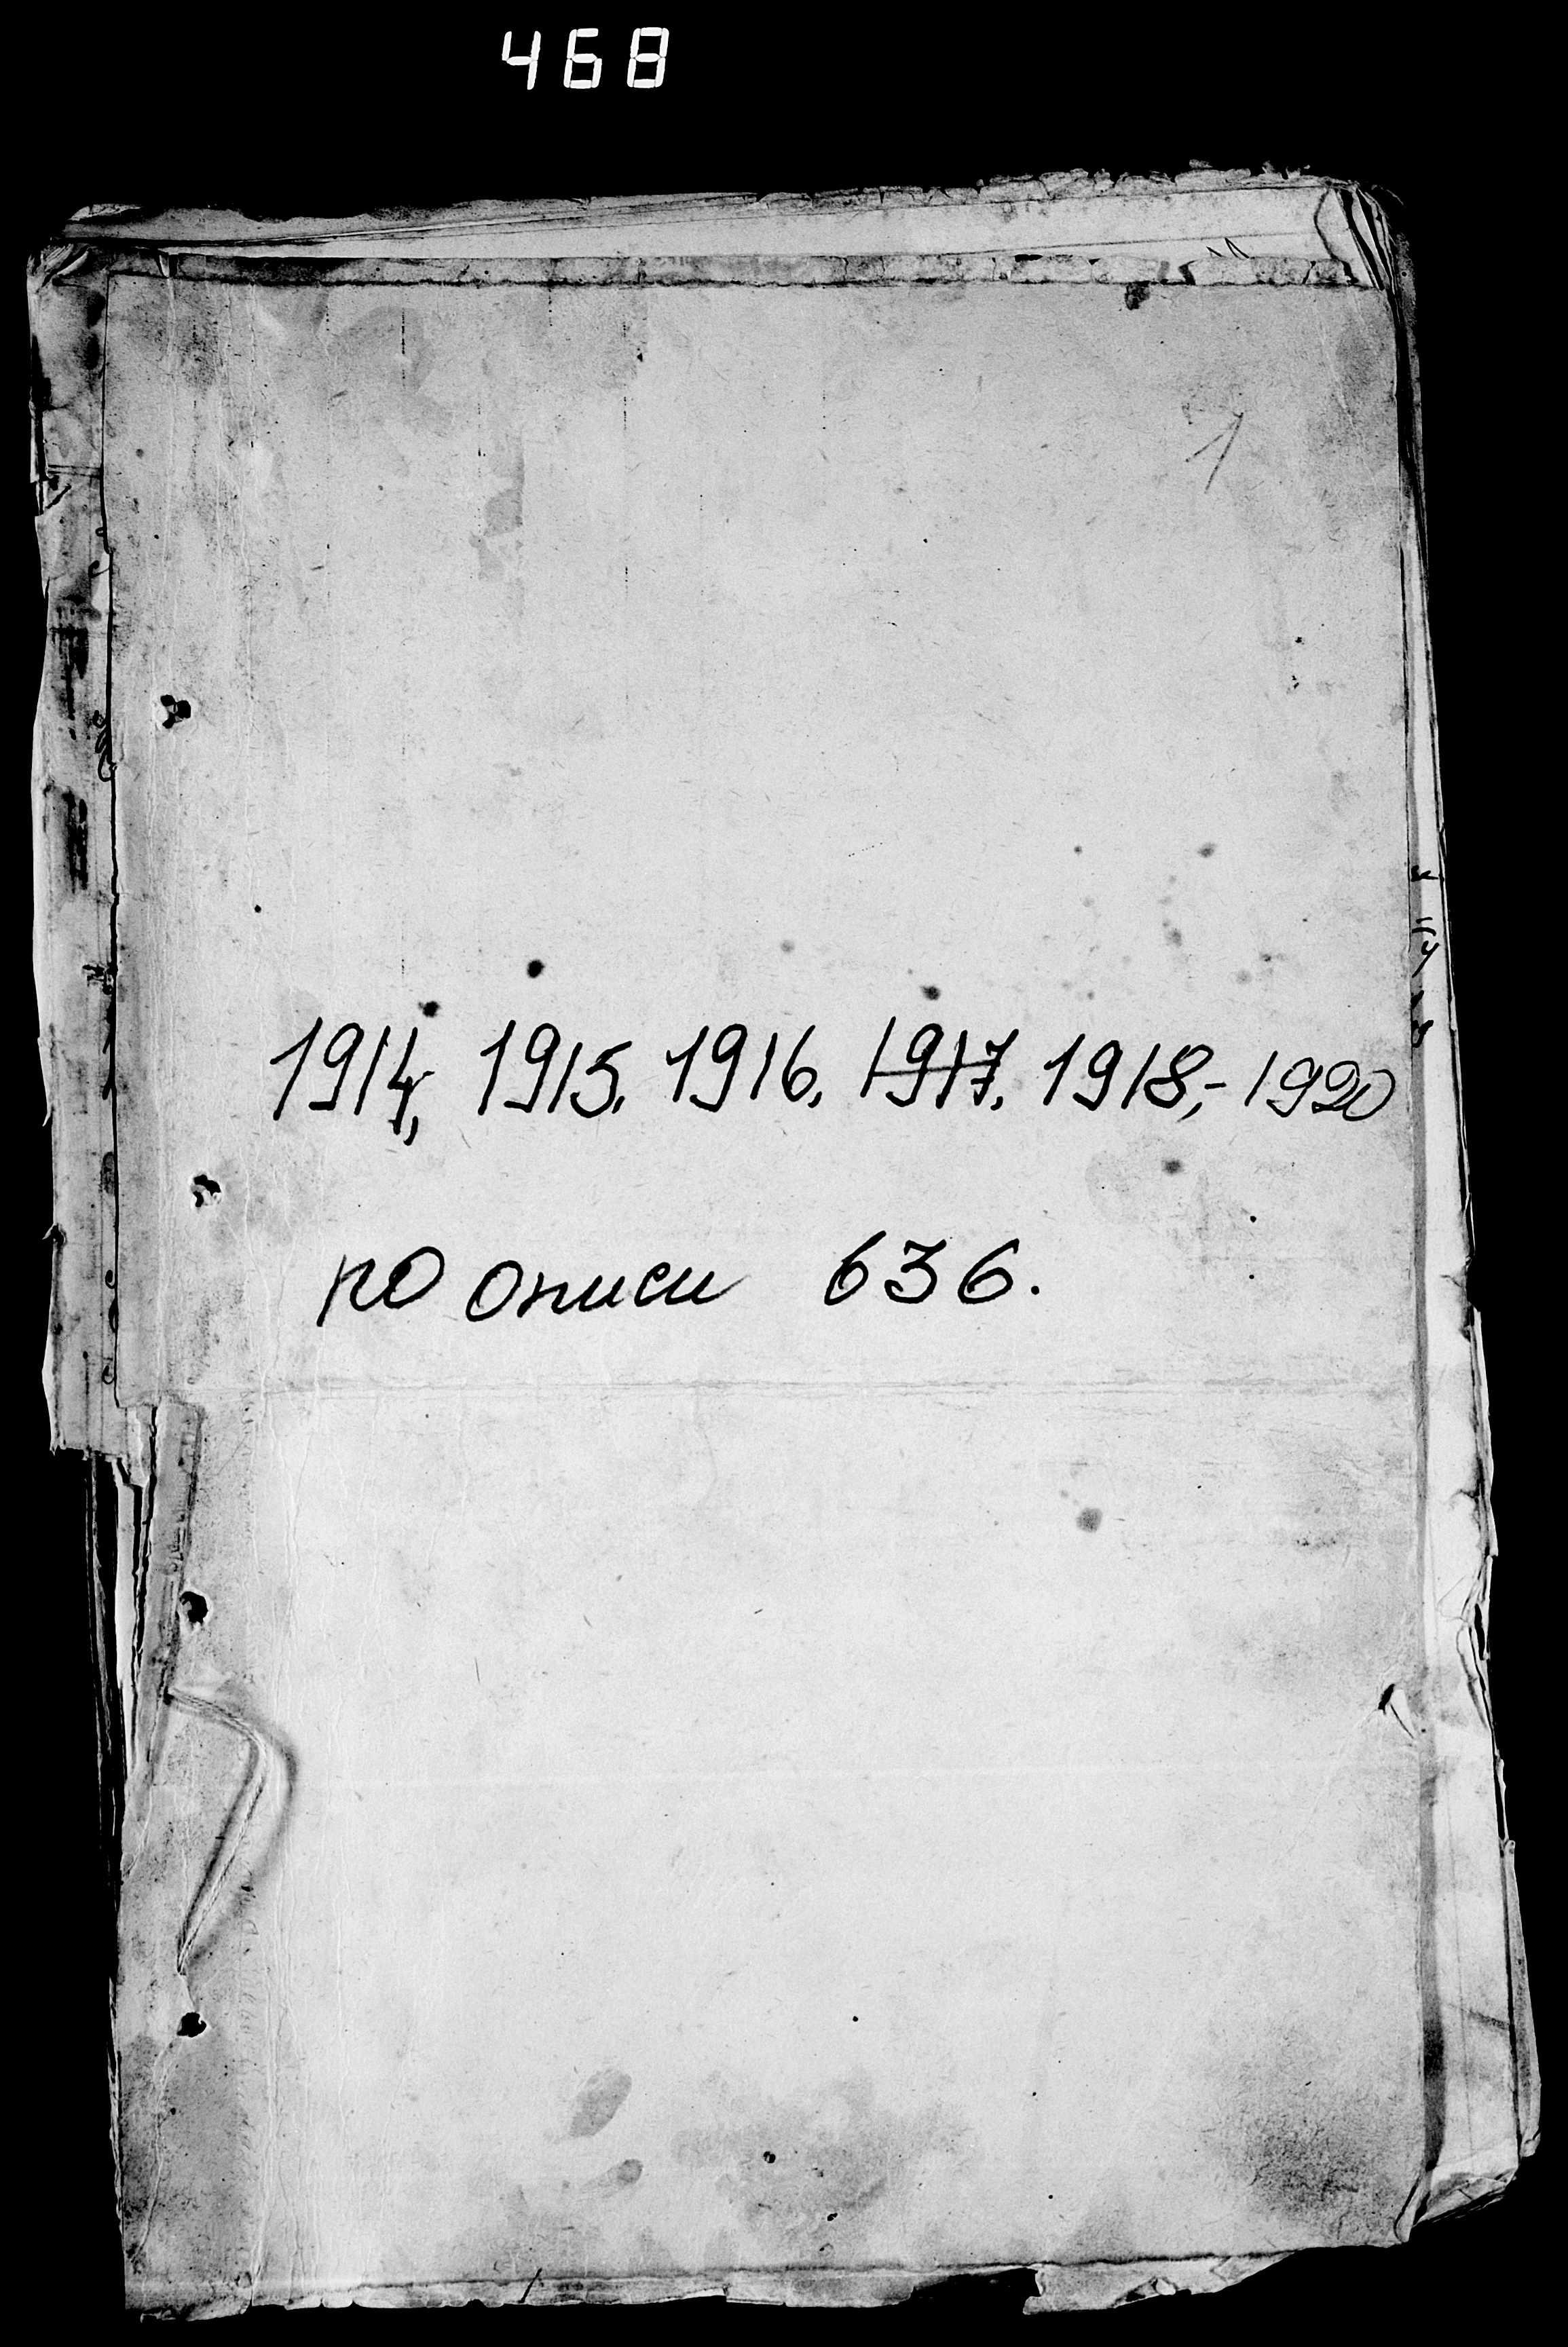 468
1
1914, 1915. 1916. 1917. 1918,- 1920
по описи 636.